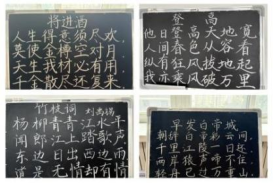 将进酒
人生得意须尽欢
莫使金樽空对月
天生我材必有用
千金散尽还复来
登高
他日登高天地宽
人间春色从容看
纵有狂风拔地起
我亦乘风破万里
竹枝词
刘禹锡
杨柳青青江水平
闻郎江上踏歌声
东边日出西边雨
道是无情却有情
早发白帝城
朝辞白帝彩云间
千里江陵一日还
两岸猿声啼不住
轻舟已过万重山